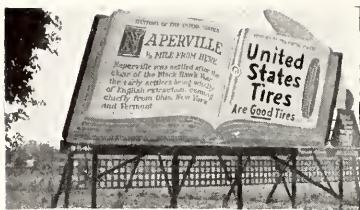 HISTORY OF THE UNITED STATES
NAPERVILLE
½ MILE FROM HERE
Naperville was settled after the
close of the Black Hawk War
the early settlers being wholly
of English extraction, coming
chiefly from Ohio, New York
and Vermont
United
States
Tires
Are Good Tires